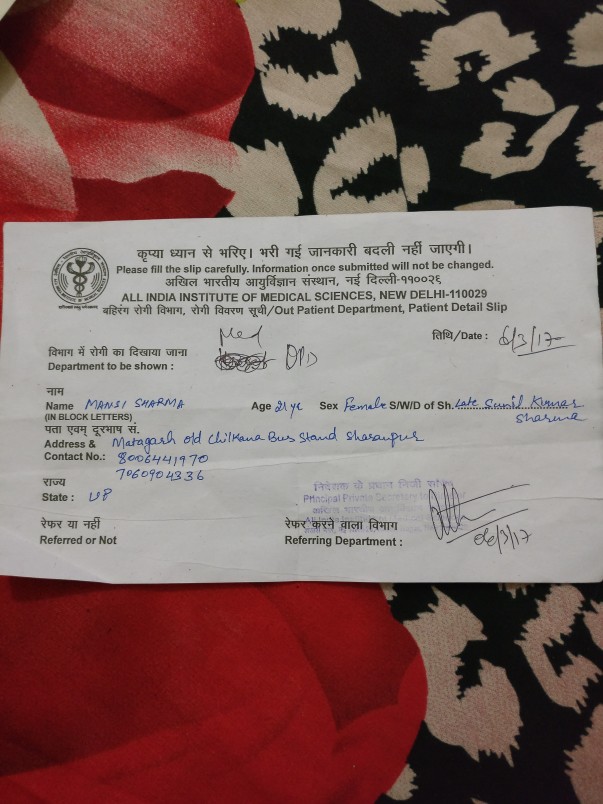 कृप्या ध्यान से भरिए। भरी गई जानकारी बदली नहीं जाएगी।
Please fill the slip carefully. Information once submitted will not be changed.
अखिल भारतीय आयुर्विज्ञान संस्थान, नई दिल्ली-११००२६
ALL INDIA INSTITUTE OF MEDICAL SCIENCES, NEW DELHI-110029
बहिरंग रोगी विभाग, रोगी विवरण सूची/Out Patient Department, Patient Detail Slip
तिथि/Date : 6/3/17
विभाग में रोगी का दिखाया जाना Med
Department to be shown : OPD
नाम
Name MANSI SHARMA Age 21 yr Sex Female S/W/D of Sh. Late Sunil Kumar
(IN BLOCK LETTERS) Sharma
पता एवम् दूरभाष सं.
Address & Matagarh old Chilkana Bus Stand Sharanpur
Contact No.: 8006441970
7060904336
राज्य
State : UP
निदेशक के प्रधान निजी सचिव
Principal Private Secretary
रेफर या नहीं रेफर करने वाला विभाग
Referred or Not Referring Department :
06/3/17